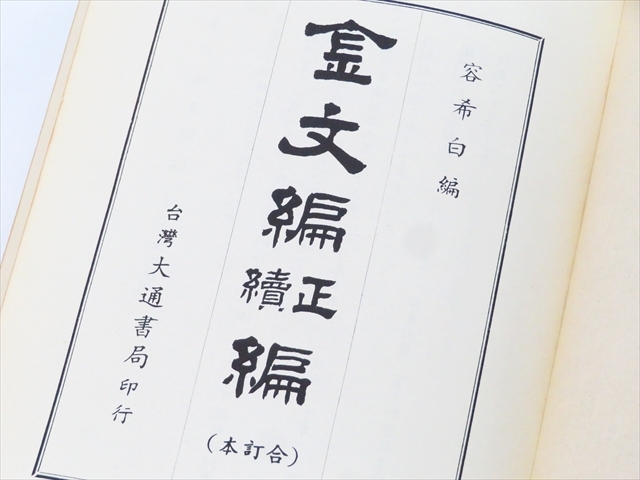 容希白編
金文編
正續
編
(合訂本)
台灣大通書局印行